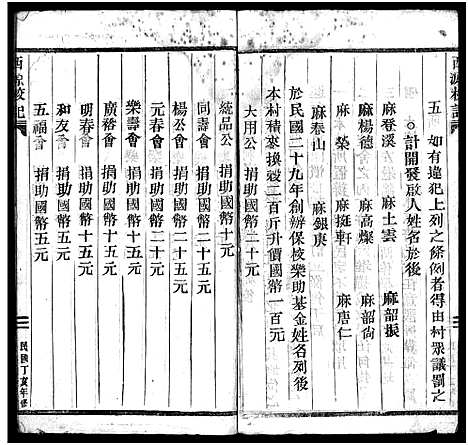 西源校記
五 如有違犯上列之條例者得由村眾議罰之
○計開發啟人姓名於後
麻春溪 麻士雲 麻韶振
麻楊德 麻高燦 麻韶尚
麻榮 麻挺軒 麻唐仁
麻泰山 麻銀庚
於民國二十九年創辦保校樂助基金姓名列後
本村積穀換穀二百斤升價國幣一百元
大用公 捐助國幣二十元
統品公 捐助國幣十元
同壽會 捐助國幣二十五元
楊公會 捐助國幣二十五元
元春會 捐助國幣二十五元
樂壽會 捐助國幣二十五元
廣裕會 捐助國幣十五元
明春會 捐助國幣十五元
和友會 捐助國幣五元
五福會 捐助國幣五元
西源校記
民國丁亥年修